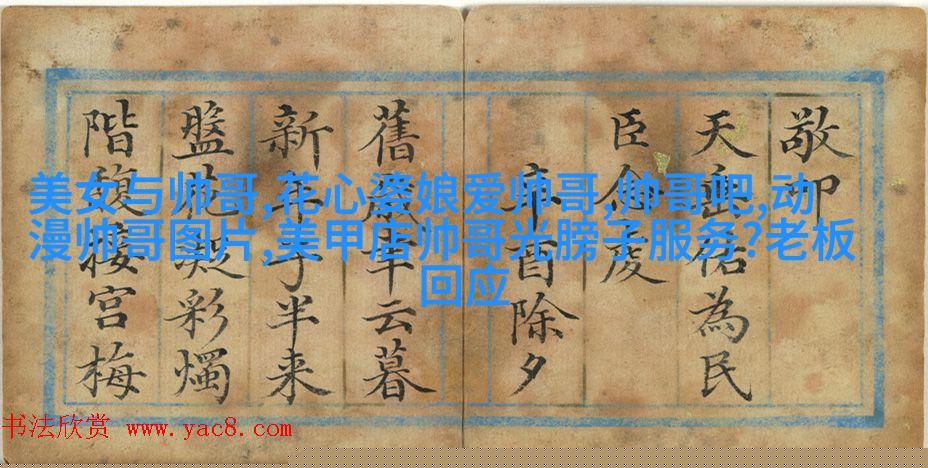 敬叩
天佑為民
臣
辛酉除夕
舊歲年云暮
新年子半来
盤花凝彩燭
階馥接宮梅
美女与帅哥,花心婆娘爱帅哥,帅哥吧,动
漫帅哥图片,美甲店帅哥光膀子服务?老板
回应
书法欣赏 www.yac8.com